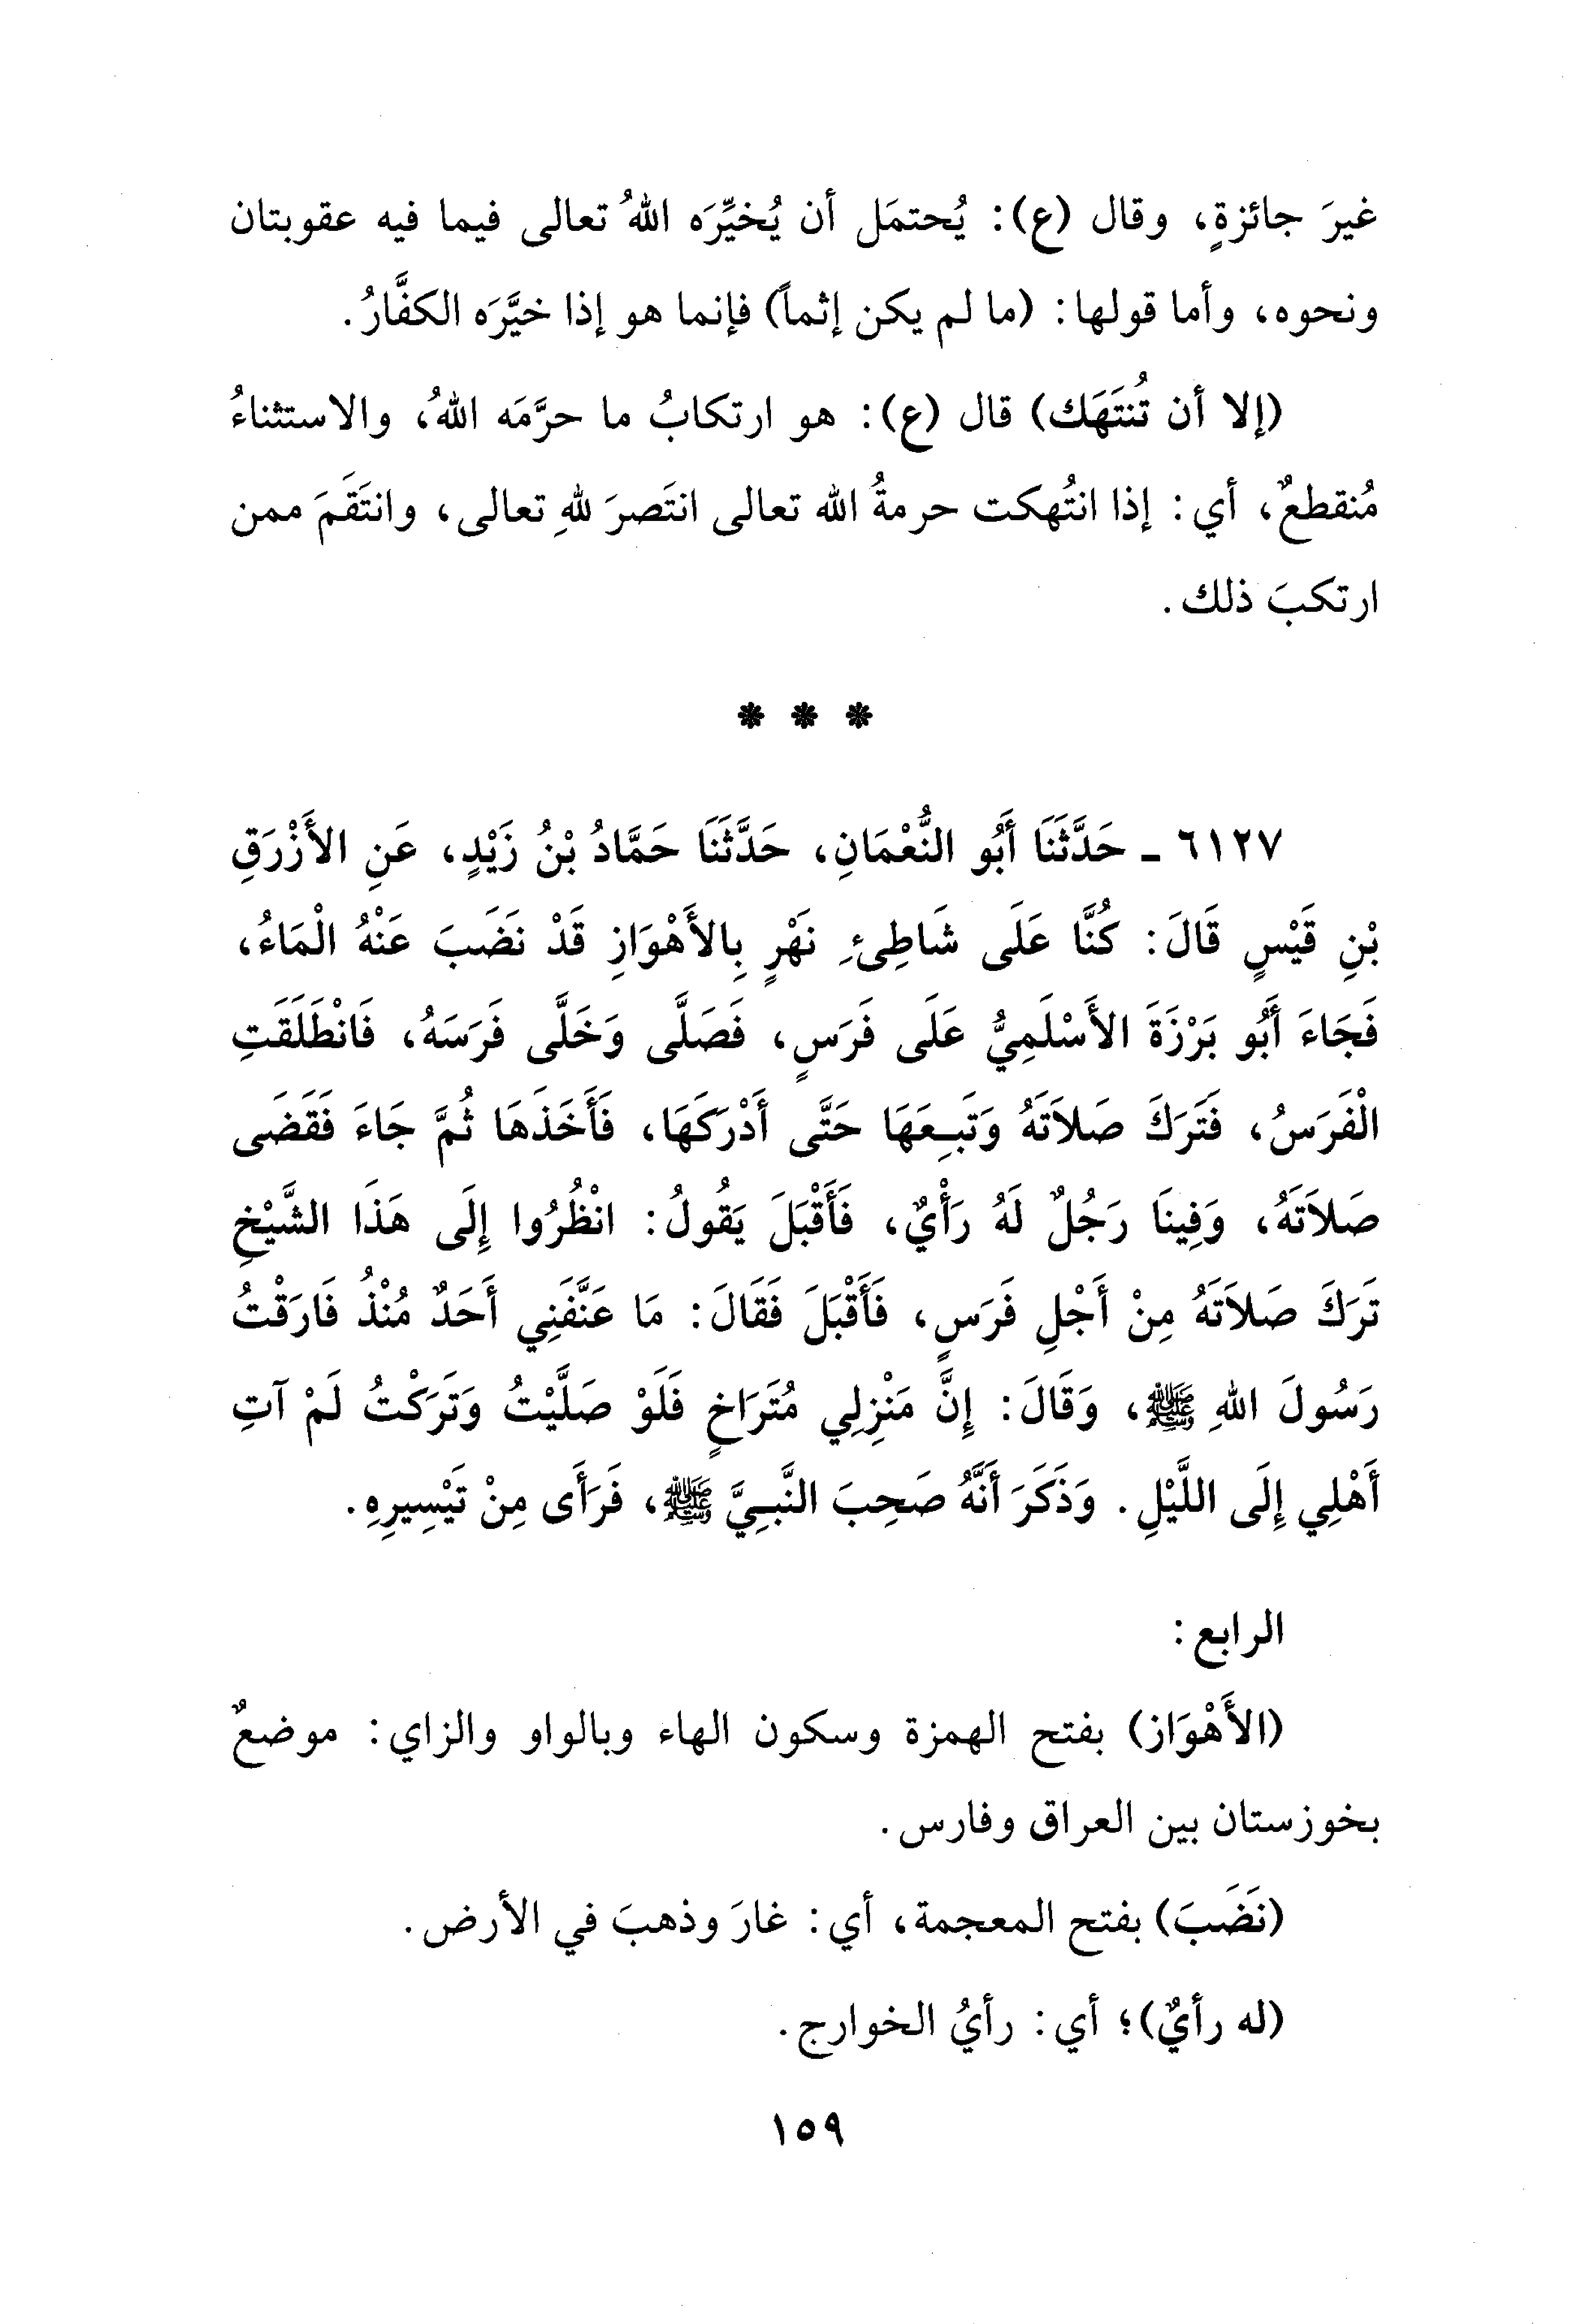 غيرَ جائزةٍ، وقال (ع): يُحتمَل أن يُخيِّرَه اللهُ تعالى فيما فيه عقوبتان
ونحوه، وأما قولها: (ما لم يكن إثماً) فإنما هو إذا خيَّرَه الكفَّارُ.
(إلا أن تُنتَهَك) قال (ع): هو ارتكابُ ما حرَّمَه اللهُ، والاستثناءُ
مُنقطعٌ، أي: إذا انتُهكت حرمةُ الله تعالى انتَصرَ للهِ تعالى، وانتَقَمَ ممن
ارتكبَ ذلك.
* * *
٦١٢٧ ـ حَدَّثَنَا أَبُو النُّعْمَانِ، حَدَّثَنَا حَمَّادُ بْنُ زَيْدٍ، عَنِ الأَزْرَقِ
بْنِ قَيْسٍ قَالَ: كُنَّا عَلَى شَاطِئِ نَهْرٍ بِالأَهْوَازِ قَدْ نَضَبَ عَنْهُ الْمَاءُ،
فَجَاءَ أَبُو بَرْزَةَ الأَسْلَمِيُّ عَلَى فَرَسٍ، فَصَلَّى وَخَلَّى فَرَسَهُ، فَانْطَلَقَتِ
الْفَرَسُ، فَتَرَكَ صَلاَتَهُ وَتَبِعَهَا حَتَّى أَدْرَكَهَا، فَأَخَذَهَا ثُمَّ جَاءَ فَقَضَى
صَلاَتَهُ، وَفِينَا رَجُلٌ لَهُ رَأْيٌ، فَأَقْبَلَ يَقُولُ: انْظُرُوا إِلَى هَذَا الشَّيْخِ
تَرَكَ صَلاَتَهُ مِنْ أَجْلِ فَرَسٍ، فَأَقْبَلَ فَقَالَ: مَا عَنَّفَنِي أَحَدٌ مُنْذُ فَارَقْتُ
رَسُولَ اللهِ ﷺ، وَقَالَ: إِنَّ مَنْزِلِي مُتَرَاخٍ فَلَوْ صَلَّيْتُ وَتَرَكْتُ لَمْ آتِ
أَهْلِي إِلَى اللَّيْلِ. وَذَكَرَ أَنَّهُ صَحِبَ النَّبِيَّ ﷺ، فَرَأَى مِنْ تَيْسِيرِهِ.
الرابع:
(الأَهْوَاز) بفتح الهمزة وسكون الهاء وبالواو والزاي: موضعٌ
بخوزستان بين العراق وفارس.
(نَضَبَ) بفتح المعجمة، أي: غارَ وذهبَ في الأرض.
(له رأيٌ)؛ أي: رأيُ الخوارج.
١٥٩